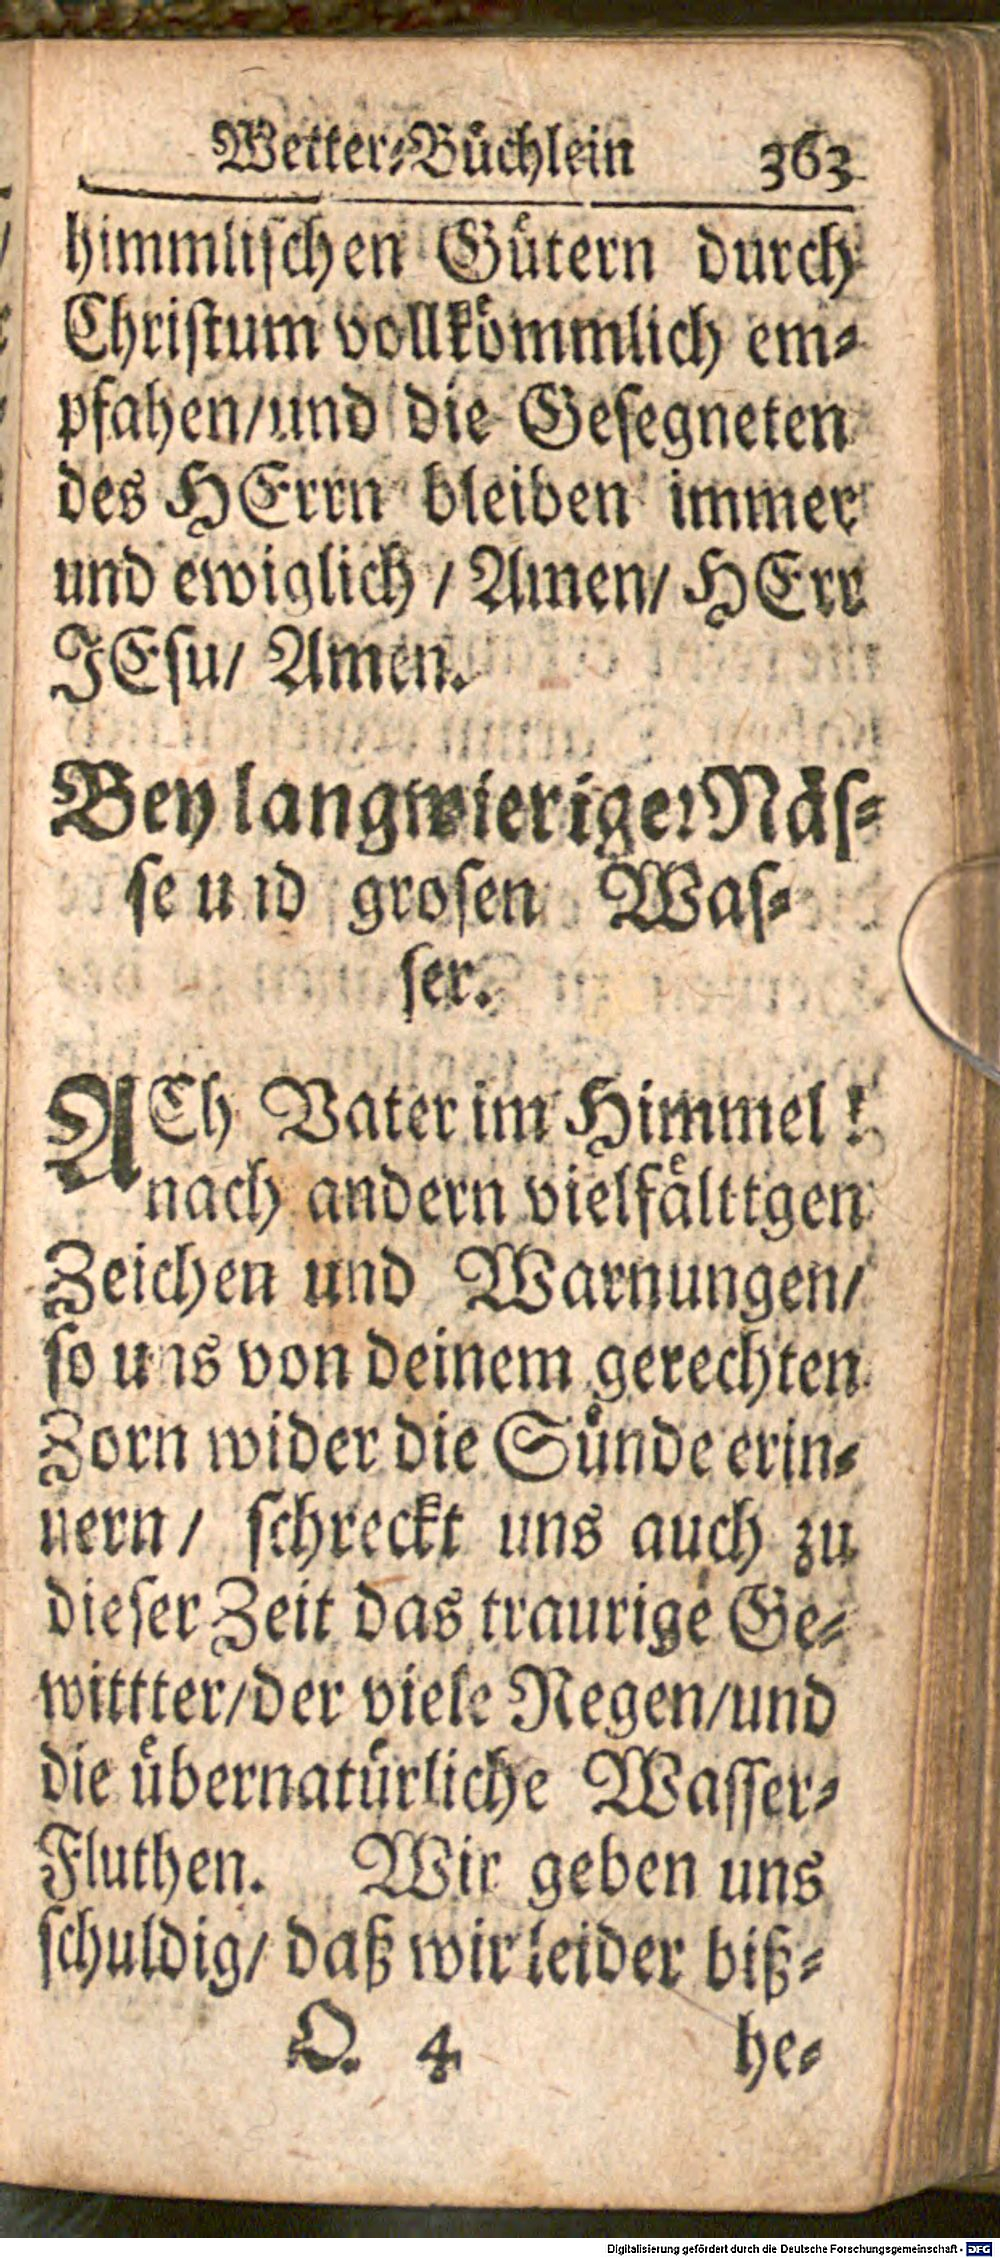 Wetter-Büchlein 363
himmlischen Gütern durch
Christum vollkömmlich em-
pfahen/und die Gesegneten
des HErrn bleiben immer
und ewiglich / Amen/ HErr
JEsu/ Amen.
Bey langwieriger Näs-
se und grosen Was-
ser.
ACh Vater im Himmel !
nach andern vielfälttgen
Zeichen und Warnungen/
so uns von deinem gerechten
Zorn wider die Sünde erin-
nern/ schreckt uns auch zu
dieser Zeit das traurige Ge-
wittter/der viele Regen/und
die übernatürliche Wasser-
Fluthen. Wir geben uns
schuldig/ daß wir leider biß-
Q. 4 he-
Digitalisierung gefördert durch die Deutsche Forschungsgemeinschaft - DFG